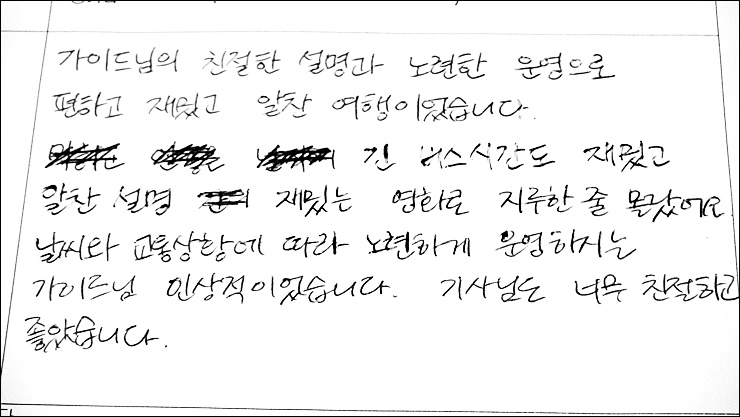 가이드님의 친절한 설명과 노련한 운영으로
편하고 재밌고 알찬 여행이었습니다.
긴 버스시간도 재밌고
알찬 설명 재밌는 영화로 지루한 줄 몰랐어요.
날씨와 교통상황에 따라 노련하게 운영하시는
가이드님 인상적이었습니다. 기사님도 너무 친절하고
좋았습니다.